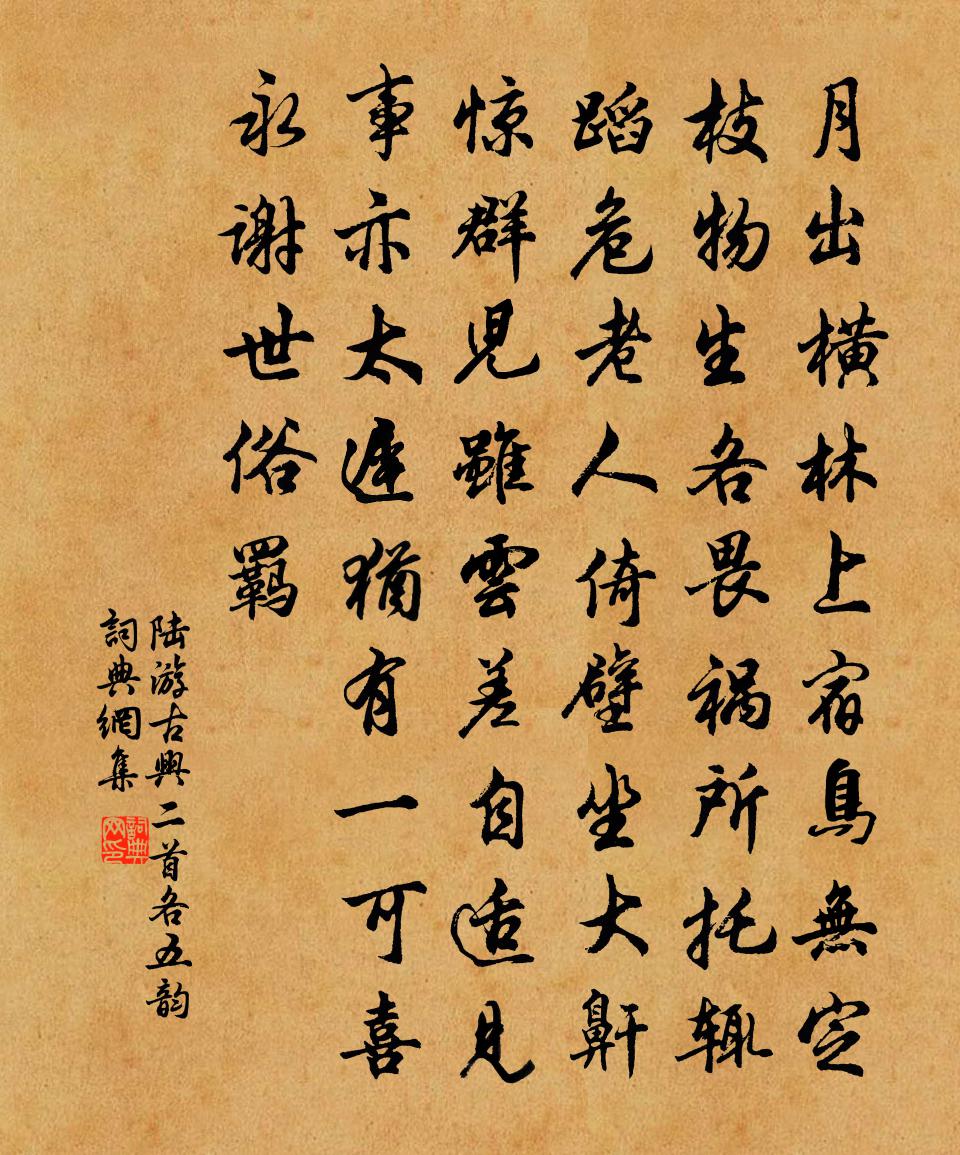 月出橫林上宿鳥無定
枝物生各畏祸所托辄
蹈危老人倚壁坐大鼾
惊群児雖雲差自适見
事亦太遲猶有一可喜
永谢世俗羁
陆游古興二首各五韵
詞典網集
詞典网印